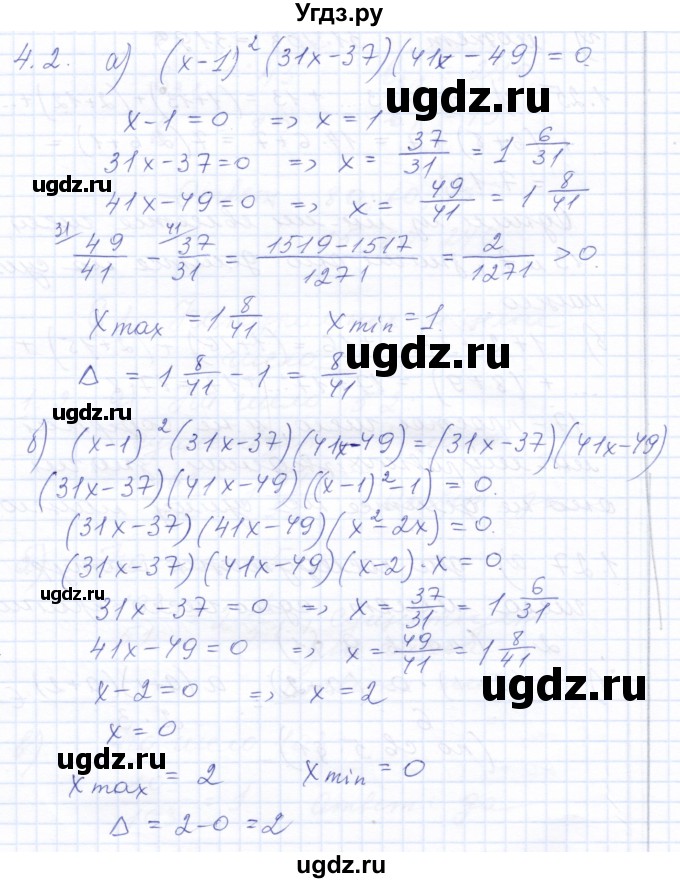 Угдз.ру
4.2. а) (x-1)² (31x-37)(41x-49) = 0.
x-1=0 => x=1
31x-37=0 => x= 37/31 = 1 6/31
41x-49=0 => x= 49/41 = 1 8/41
31/ 49/41 - 41/ 37/31 = (1519-1517)/1271 = 2/1271 > 0.
x max = 1 8/41 x min = 1.
Δ = 1 8/41 - 1 = 8/41
б) (x-1)² (31x-37)(41x-49) = (31x-37)(41x-49)
(31x-37)(41x-49)((x-1)²-1) = 0.
(31x-37)(41x-49)(x²-2x) = 0.
(31x-37)(41x-49)(x-2)·x = 0.
31x-37=0 => x= 37/31 = 1 6/31
41x-49=0 => x= 49/41 = 1 8/41
x-2=0 => x=2
x=0
x max = 2 x min = 0
Δ = 2-0 = 2
ugdz.ru
ugdz.ru
ugdz.ru
ugdz.ru
ugdz.ru
ugdz.ru
ugdz.ru
ugdz.ru
ugdz.ru
ugdz.ru